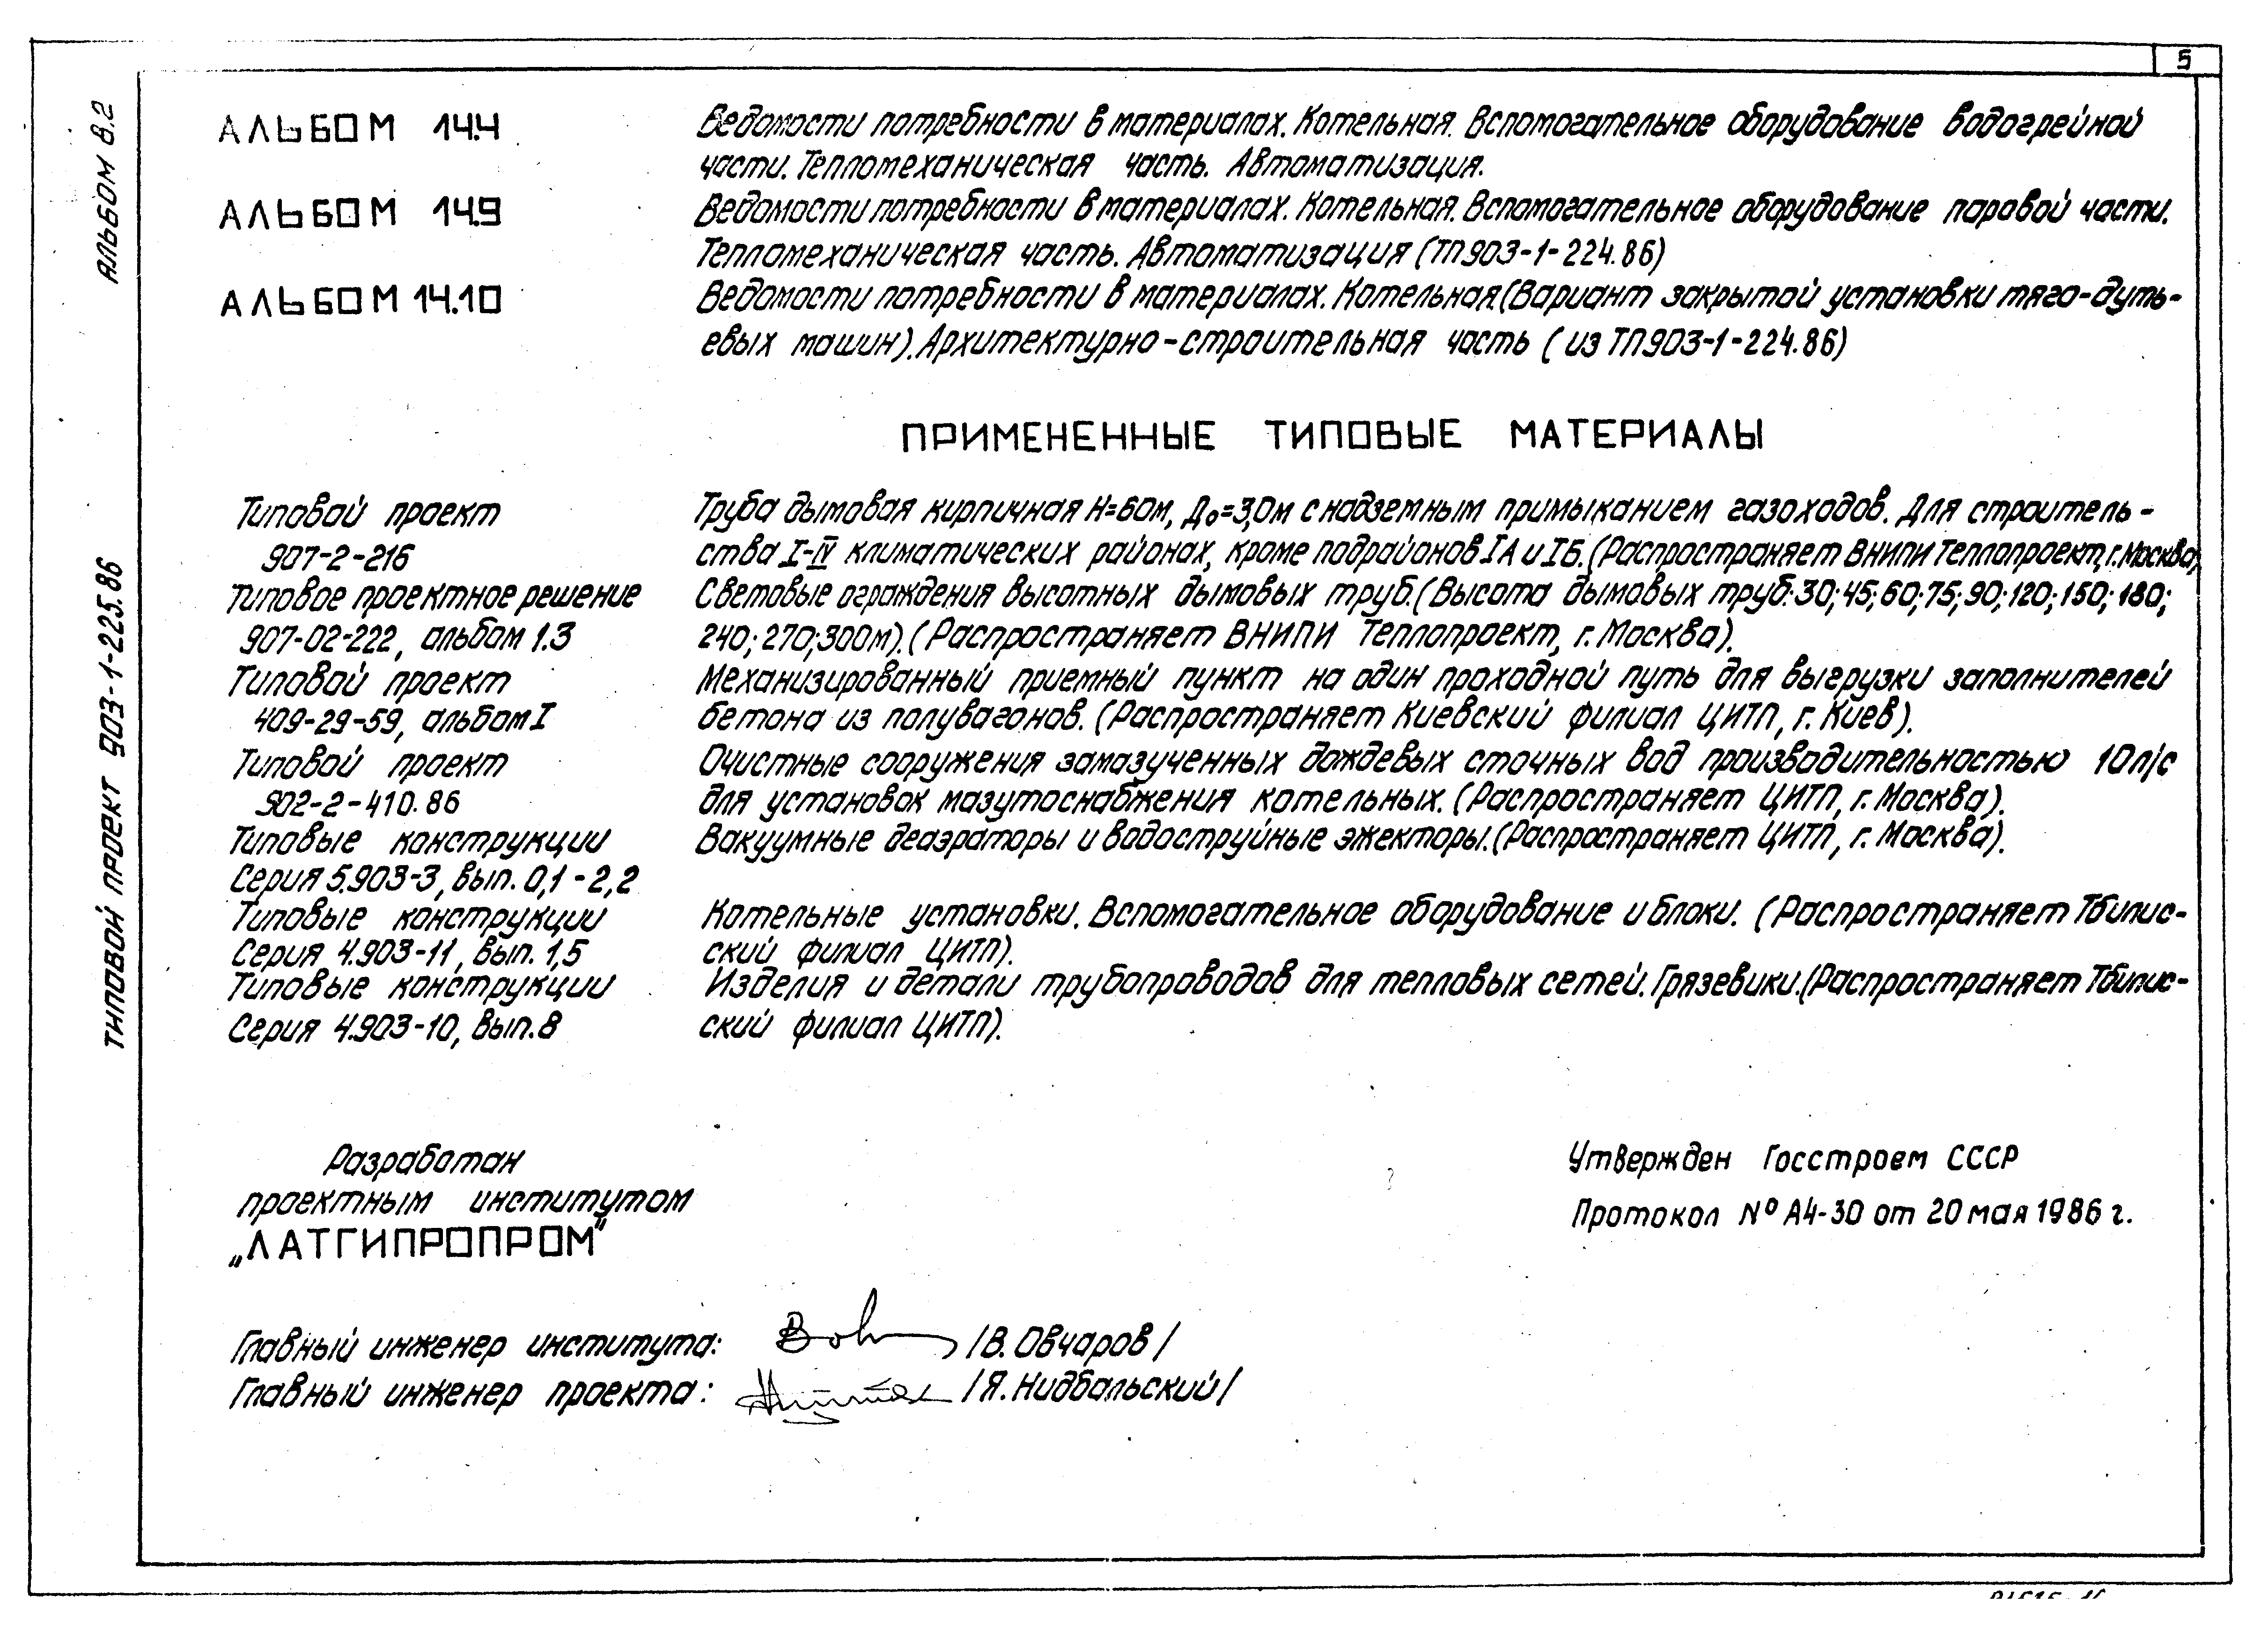 5
АЛЬБОМ 8.2
ТИПОВОЙ ПРОЕКТ 903-1-225.86
АЛЬБОМ 14.4 Ведомости потребности в материалах. Котельная. Вспомогательное оборудование водогрейной
части. Тепломеханическая часть. Автоматизация.
АЛЬБОМ 14.9 Ведомости потребности в материалах. Котельная. Вспомогательное оборудование паровой части.
Тепломеханическая часть. Автоматизация (ТП903-1-224.86)
АЛЬБОМ 14.10 Ведомости потребности в материалах. Котельная.(Вариант закрытой установки тяго-дуть-
евых машин). Архитектурно-строительная часть (из ТП903-1-224.86)
ПРИМЕНЕННЫЕ ТИПОВЫЕ МАТЕРИАЛЫ
Типовой проект Труба дымовая кирпичная Н=60м, До=3,0м с надземным примыканием газоходов. Для строитель-
907-2-216 ства I-IV климатических районах, кроме подрайонов IА и IБ. (Распространяет ВНИПИ Теплопроект, г. Москва)
Типовое проектное решение Световые ограждения высотных дымовых труб. (Высота дымовых труб: 30; 45; 60; 75; 90; 120; 150; 180;
907-02-222, альбом 1.3 240; 270; 300м). (Распространяет ВНИПИ Теплопроект, г. Москва).
Типовой проект Механизированный приемный пункт на один проходной путь для выгрузки заполнителей
409-29-59, альбом I бетона из полувагонов. (Распространяет Киевский филиал ЦИТП, г. Киев).
Типовой проект Очистные сооружения замазученных дождевых сточных вод производительностью 10л/с
902-2-410.86 для установок мазутоснабжения котельных. (Распространяет ЦИТП, г. Москва).
Типовые конструкции Вакуумные деаэраторы и водоструйные эжекторы. (Распространяет ЦИТП, г. Москва).
Серия 5.903-3, вып. 0,1-2,2
Типовые конструкции Котельные установки. Вспомогательное оборудование и блоки. (Распространяет Тбилис-
Серия 4.903-11, вып. 1,5 ский филиал ЦИТП).
Типовые конструкции Изделия и детали трубопроводов для тепловых сетей. Грязевики. (Распространяет Тбилис-
Серия 4.903-10, вып. 8 ский филиал ЦИТП).
Разработан
проектным институтом
„ЛАТГИПРОПРОМ"
Утвержден Госстроем СССР
Протокол № А4-30 от 20 мая 1986 г.
Главный инженер института: /В. Овчаров/
Главный инженер проекта: /Я. Нидбальский/